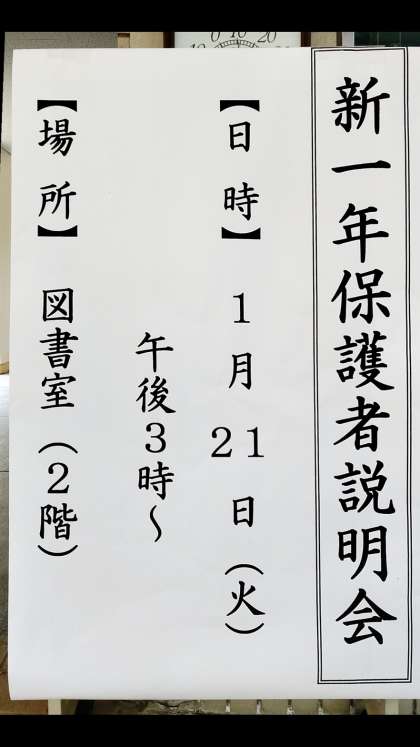 新一年保護者説明会
【日時】 1月21日(火)
午後3時～
【場所】 図書室(2階)